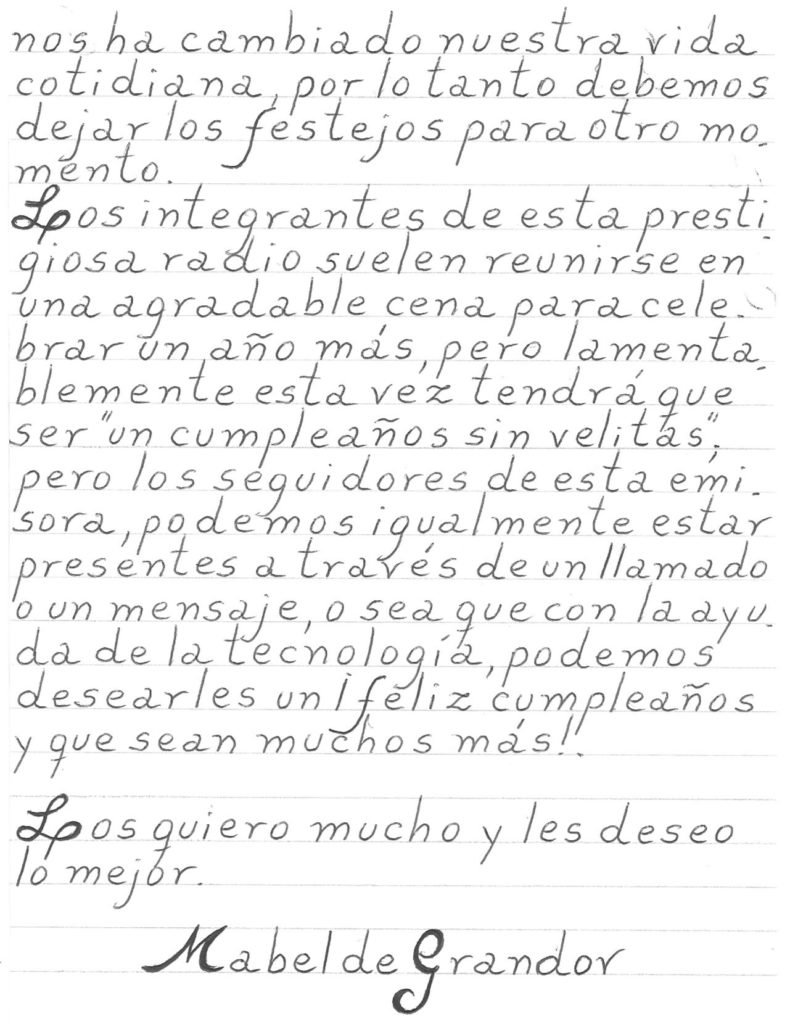 nos ha cambiado nuestra vida
cotidiana, por lo tanto debemos
dejar los festejos para otro mo-
mento.
Los integrantes de esta presti-
giosa radio suelen reunirse en
una agradable cena para cele-
brar un año más, pero lamenta-
blemente esta vez tendrá que
ser "un cumpleaños sin velitas";
pero los seguidores de esta emi-
sora, podemos igualmente estar
presentes a través de un llamado
o un mensaje, o sea que con la ayu-
da de la tecnología, podemos
desearles un ¡feliz cumpleaños
y que sean muchos más!.
Los quiero mucho y les deseo
lo mejor.
Mabel de Grandor